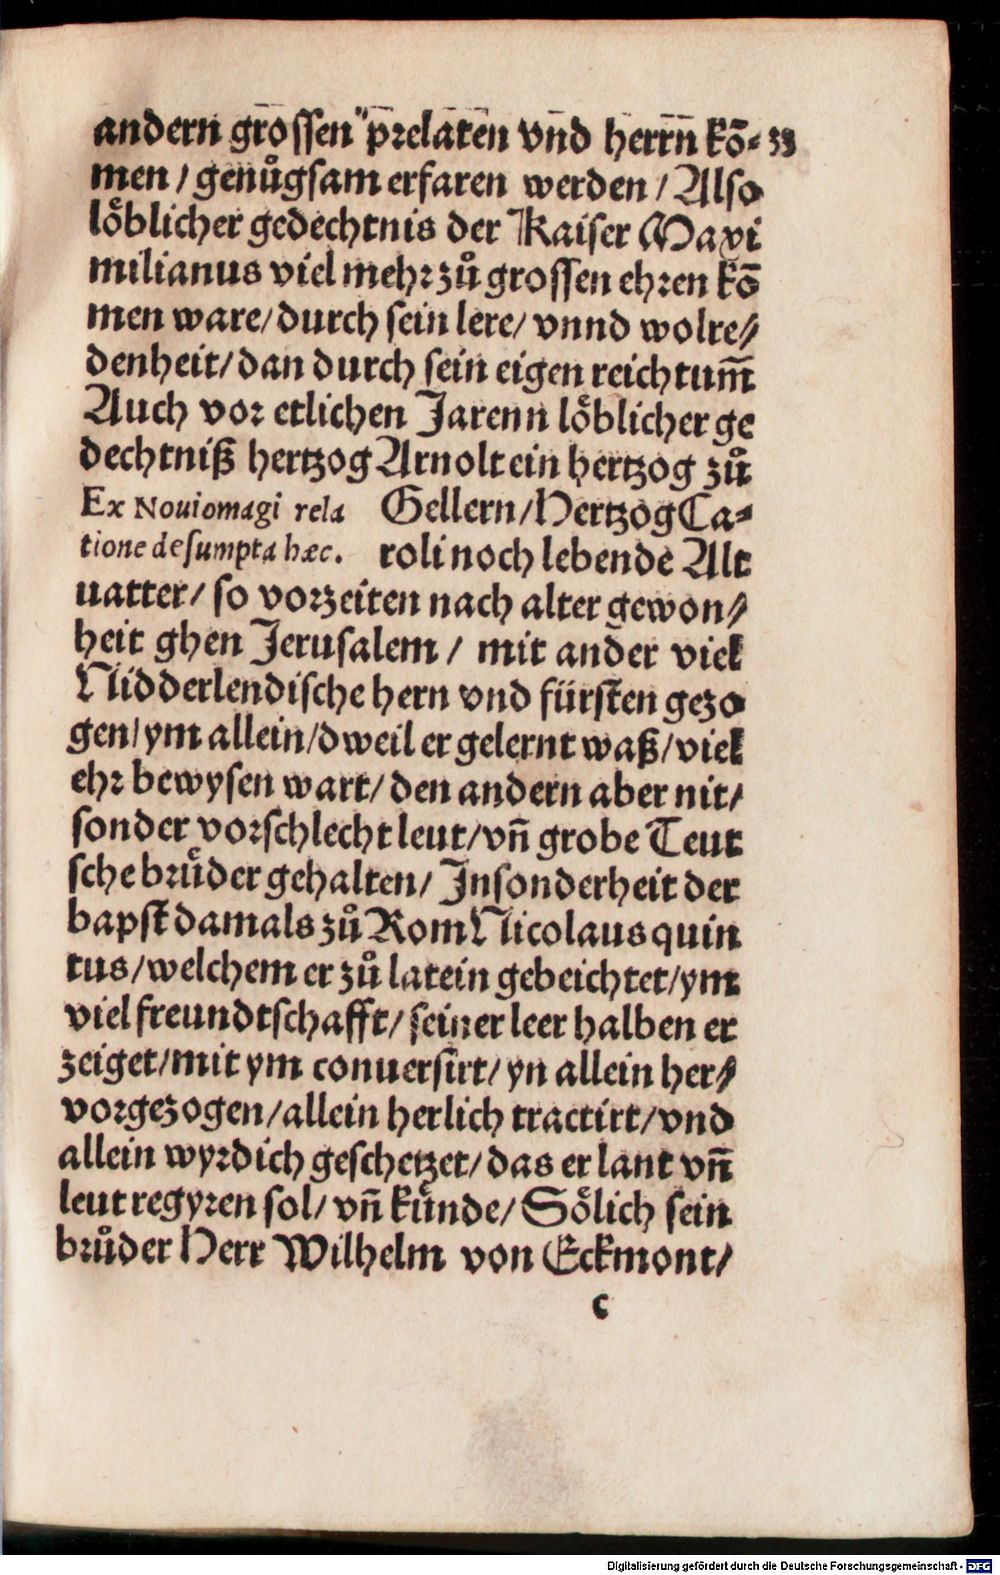 andern grossen prelaten vnd herrn kō-
men / genůgsam erfaren werden / Also
lôblicher gedechtnis der Kaiser Maxi
milianus viel mehr zů grossen ehren kō
men ware/ durch sein lere/ vnnd wolre//
denheit/ dan durch sein eigen reichtum̄
Auch vor etlichen Jarenn lôblicher ge
dechtniß hertzog Arnolt ein hertzog zů
Ex Nouiomagi rela
tione desumpta hæc.
Gellern/ Hertzog Ca-
roli noch lebende Alt
uatter/ so vorzeiten nach alter gewon//
heit ghen Jerusalem / mit ander viel
Nidderlendische hern vnd fürsten gezo
gen/ ym allein/ dweil er gelernt waß/ viel
ehr bewysen wart/ den andern aber nit/
sonder vor schlecht leut/ vn̄ grobe Teut
sche brůder gehalten/ Jnsonderheit der
bapst damals zů Rom Nicolaus quin
tus/ welchem er zů latein gebeichtet/ ym
viel freundtschafft/ seiner leer halben er
zeiget/ mit ym conuersirt/ yn allein her//
vorgezogen/ allein herlich tractirt/ vnd
allein wyrdich geschetzet/ das er lant vn̄
leut regyren sol/ vn̄ kůnde/ Sôlich sein
brůder Herr Wilhelm von Eckmont/
c
Digitalisierung gefördert durch die Deutsche Forschungsgemeinschaft - DFG